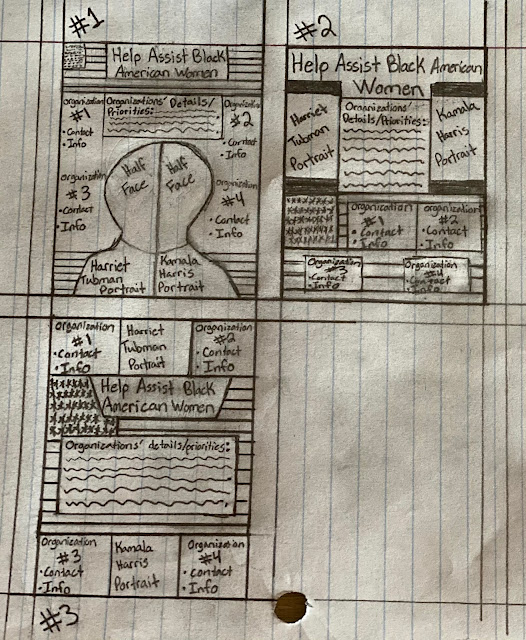 #1
Help Assist Black
American Women
Organization
#1
• Contact
• Info
Organizations' Details/
Priorities:
Organization
#2
• Contact
• Info
Organization
#3
• Contact
• Info
Half
Face
Half
Face
Organization
#4
• Contact
• Info
Harriet
Tubman
Portrait
Kamala
Harris
Portrait
#2
Help Assist Black American
Women
Harriet
Tubman
Portrait
Organizations'
Details/Priorities:
Kamala
Harris
Portrait
Organization
#1
• Contact
• Info
Organization
#2
• Contact
• Info
Organization
#3
• Contact
• Info
Organization
#4
• Contact
• Info
Organization
#1
• Contact
• Info
Harriet
Tubman
Portrait
Organization
#2
• Contact
• Info
Help Assist Black
American Women
Organizations' details/priorities:
Organization
#3
• Contact
• Info
Kamala
Harris
Portrait
Organization
#4
• Contact
• Info
#3